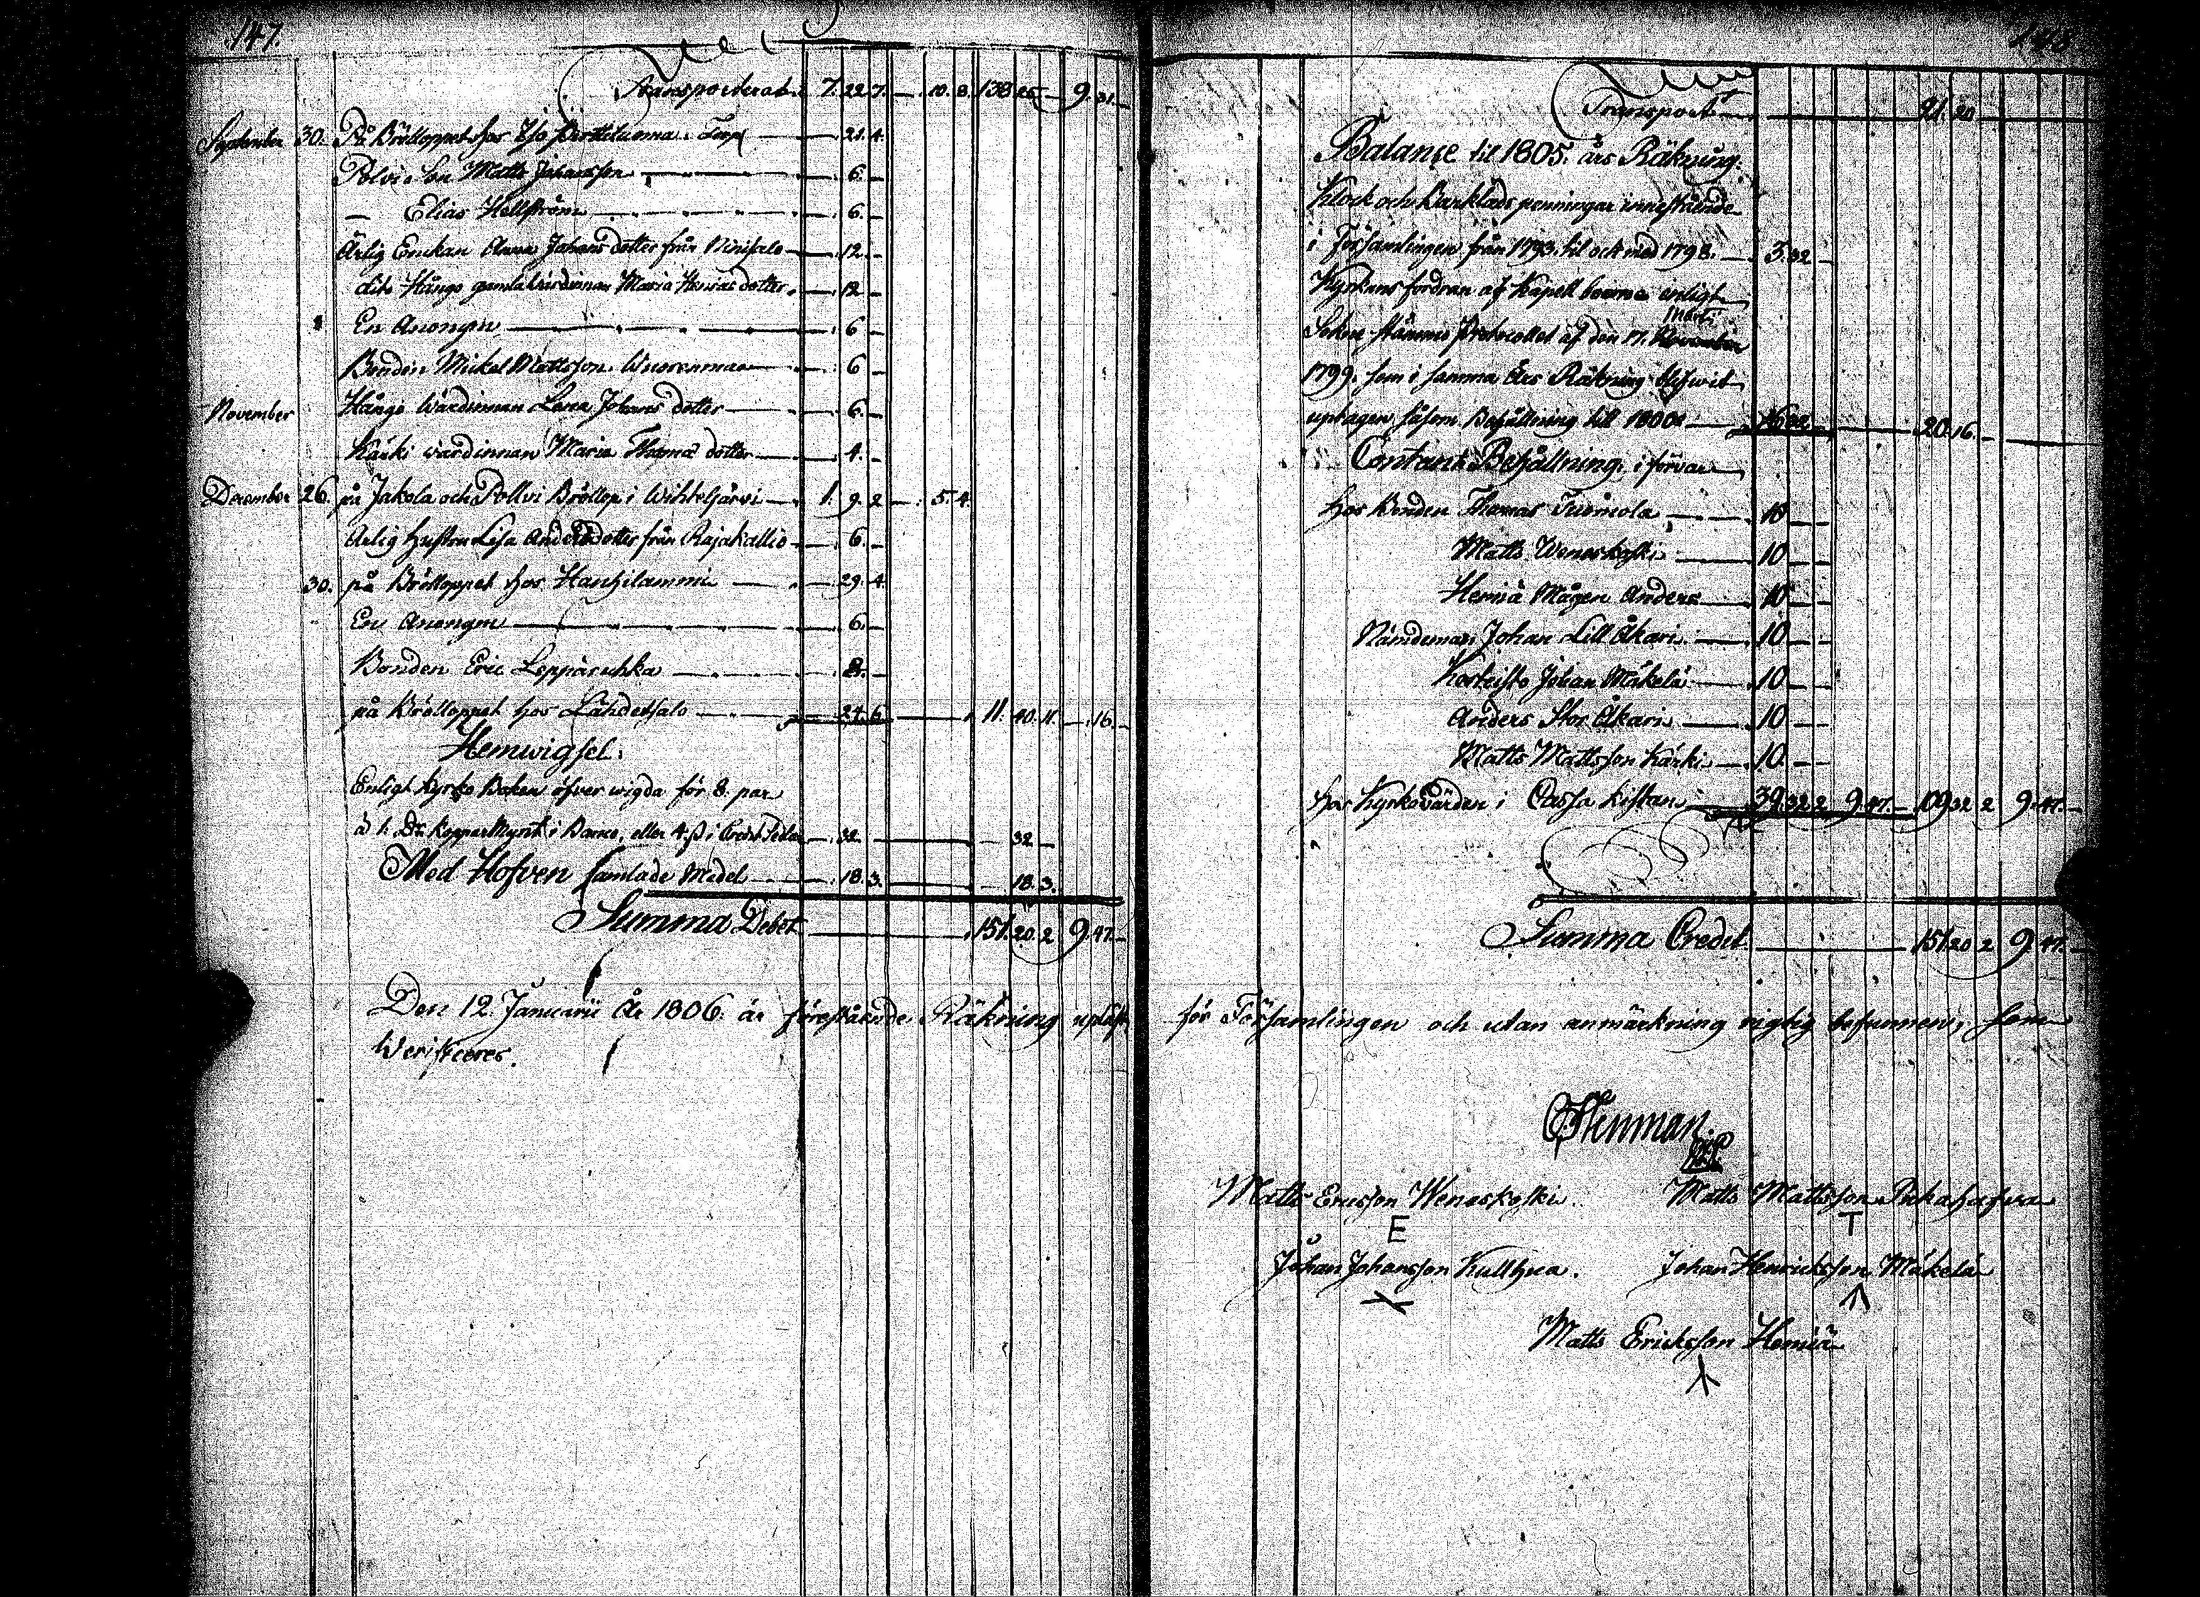 147.
Transporterat 7. 22. 7. — 10. 8. 138 25 — 9. 31. —
September 30. På Bröllopet hos Yso Perttilamma — 21. 4.
Polvi Son Matts Johansson — 6. —
— Elias Hellström — 6. —
Ärlig Enckan Anna Johans dotter från Ninisalo — 12. —
dito Hånge gamla wärdinnan Maria Henrics dotter — 12 —
En Anonym — 6 —
Bonden Mickel Mattsson Wuorenmaa — 6 —
November Hånge Wärdinnan Lena Johans dotter — 6. —
Karki wärdinnan Maria Thomæ dotter — 4. —
December 26. på Jakola och Pollvi Bröllop i Wihteljärvi — 1. 9. 2 — 5. 4.
Ärlig Hustru Lisa Anders dotter från Rajakallio — 6. —
30. på Bröllopet hos Hanhilammi — 29. 4.
En Anonym — 6. —
Bonden Eric Leppäruhka — 8. —
på Bröllopet hos Lähdetsalo — 24. 6 — 11. 40. 11. — 16. —
Hemwigsel.
Enligt Kyrko Boken öfver wigda för 8. par
à 1. Dr. KopparMynt i Banco, eller 4. ß i Credit Sedlar — 32 — 32 —
Med Hofven samlade Medel — 18. 3. — 18. 3.
Summa Debet — 151. 20. 2 9. 47. —
Den 12. Januarii År 1806. är förestående Räkning upläst
Werifieres.
148
Transport — 21. 20
Balance til 1805. års Räkning.
Klock och Barklads penningar innestående
i Församlingen från 1793. til och med 1798. — 3. 32 —
Kyrkans fordran af Kapell boerne enligt
Martii
Sokne stämmo Protocollet af den 17. November
1799. som i samma Års Räkning blifwit
uptagen såsom Behållning till 1800 — 16 32 — 20. 16. —
Contant Behållning i förvar
hos Bonden Thomas Tuomola — 10 — —
Matts Weneskoski — 10 — —
Hemiä Mågen Anders — 10 — —
Nämdeman Johan Lill Äkäri — 10 — —
Korteisto Johan Mäkelä — 10 — —
Anders Stor Äkäri — 10 — —
Matts Mattsson Kärki — 10. — —
hos Kyrko Wärden i Cassa Kistan — 39. 32 2 9. 47. — 109 32 2 9. 47. —
Summa Credit — 151 20 2 9. 47. —
för Församlingen och utan anmärkning rigtig befunnen; som
Stenman.
Matts Ericsson Weneskoski. Matts Mattsson
E T
Johan Johansson Kullhua. Johan Henricksson Mäkelä
Matts Ericksson Hemiä